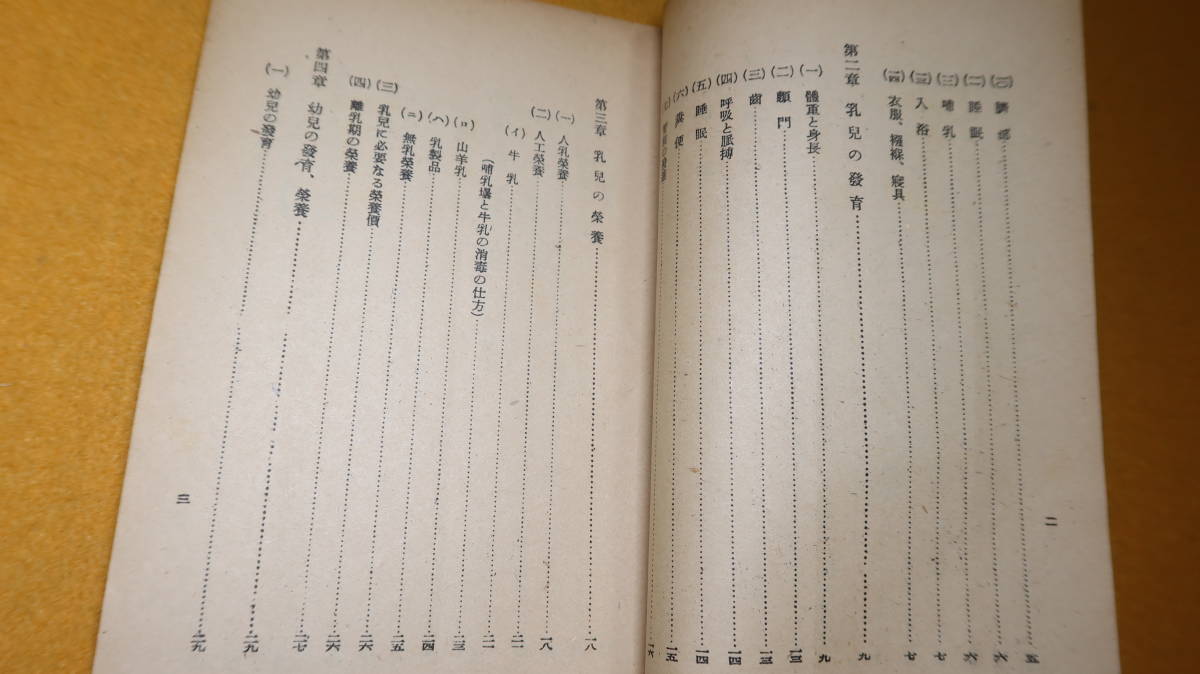 二
(一〇) 臍部 五
(一一) 睡眠 六
哺乳 六
(一三) 入浴 七
(一四) 衣服、襁褓、寢具 七
第二章 乳兒の發育 九
(一) 體重と身長 九
(二) 顖門 一三
(三) 齒 一三
(四) 呼吸と脈搏 一四
(五) 睡眠 一四
(六) 糞便 一五
一六
第三章 乳兒の榮養 一八
(一) 人乳榮養 一八
(二) 人工榮養
(イ) 牛乳
(哺乳壜と牛乳の消毒の仕方)
(ロ) 山羊乳
(ハ) 乳製品 二四
(ニ) 無乳榮養 二五
(三) 乳兒に必要なる榮養價 二六
(四) 離乳期の榮養 二六
第四章 幼兒の發育、榮養 二七
(一) 幼兒の發育 二九
二九
三